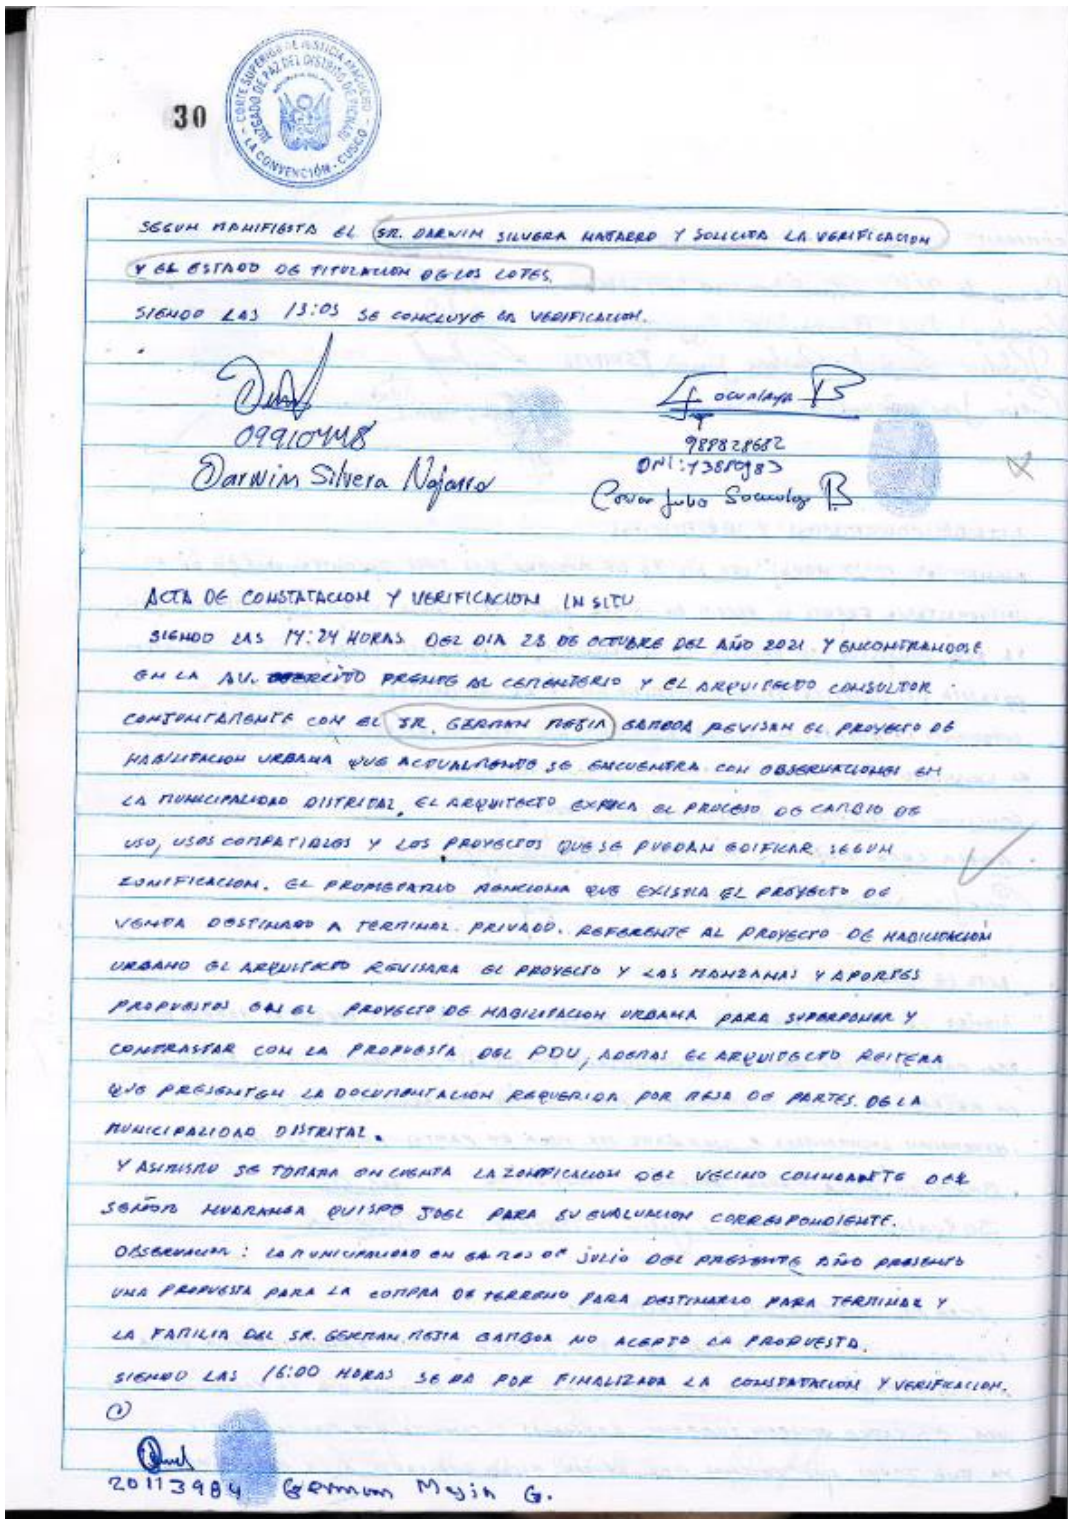 30
CORTE SUPERIOR DE JUSTICIA AYACUCHO
JUZGADO DE PAZ DEL DISTRITO DE PICHARI
LA CONVENCIÓN - CUSCO
SEGUN MANIFIESTA EL SR. DARWIN SILVERA NAJARRO Y SOLICITA LA VERIFICACION
Y EL ESTADO DE TITULACION DE LOS LOTES.
SIENDO LAS 13:05 SE CONCLUYE LA VERIFICACION.
09910448
Darwin Silvera Najarro
988828682
DNI:
Julio B
ACTA DE CONSTATACION Y VERIFICACION IN SITU
SIENDO LAS 14:24 HORAS DEL DIA 23 DE OCTUBRE DEL AÑO 2021 Y ENCONTRANDOSE
EN LA AV. EJERCITO FRENTE AL CEMENTERIO Y EL ARQUITECTO CONSULTOR
CONJUNTAMENTE CON EL SR. GERMAN MEJIA GAMBOA REVISAN EL PROYECTO DE
HABILITACION URBANA QUE ACTUALMENTE SE ENCUENTRA CON OBSERVACIONES EN
LA MUNICIPALIDAD DISTRITAL, EL ARQUITECTO EXPLICA EL PROCESO DE CAMBIO DE
USO, USOS COMPATIBLES Y LOS PROYECTOS QUE SE PUEDAN EDIFICAR SEGUN
ZONIFICACION. EL PROPIETARIO MENCIONA QUE EXISTIA EL PROYECTO DE
VENTA DESTINADO A TERMINAL PRIVADO. REFERENTE AL PROYECTO DE HABILITACION
URBANO EL ARQUITECTO REVISARA EL PROYECTO Y LAS MANZANAS Y APORTES
PROPUESTOS EN EL PROYECTO DE HABILITACION URBANA PARA SUPERPONER Y
CONTRASTAR CON LA PROPUESTA DEL PDU, ADEMAS EL ARQUITECTO REITERA
QUE PRESENTEN LA DOCUMENTACION REQUERIDA POR MESA DE PARTES DE LA
MUNICIPALIDAD DISTRITAL.
Y ASIMISMO SE TOMARA EN CUENTA LA ZONIFICACION DEL VECINO COLINDANTE DEL
SEÑOR HUARANGA QUISPE JOEL PARA SU EVALUACION CORRESPONDIENTE.
OBSERVACION: LA MUNICIPALIDAD EN EL MES DE JULIO DEL PRESENTE AÑO PRESENTO
UNA PROPUESTA PARA LA COMPRA DE TERRENO PARA DESTINARLO PARA TERMINAL Y
LA FAMILIA DEL SR. GERMAN MEJIA GAMBOA NO ACEPTO LA PROPUESTA.
SIENDO LAS 16:00 HORAS SE DA POR FINALIZADA LA CONSTATACION Y VERIFICACION.
20113984 German Mejia G.